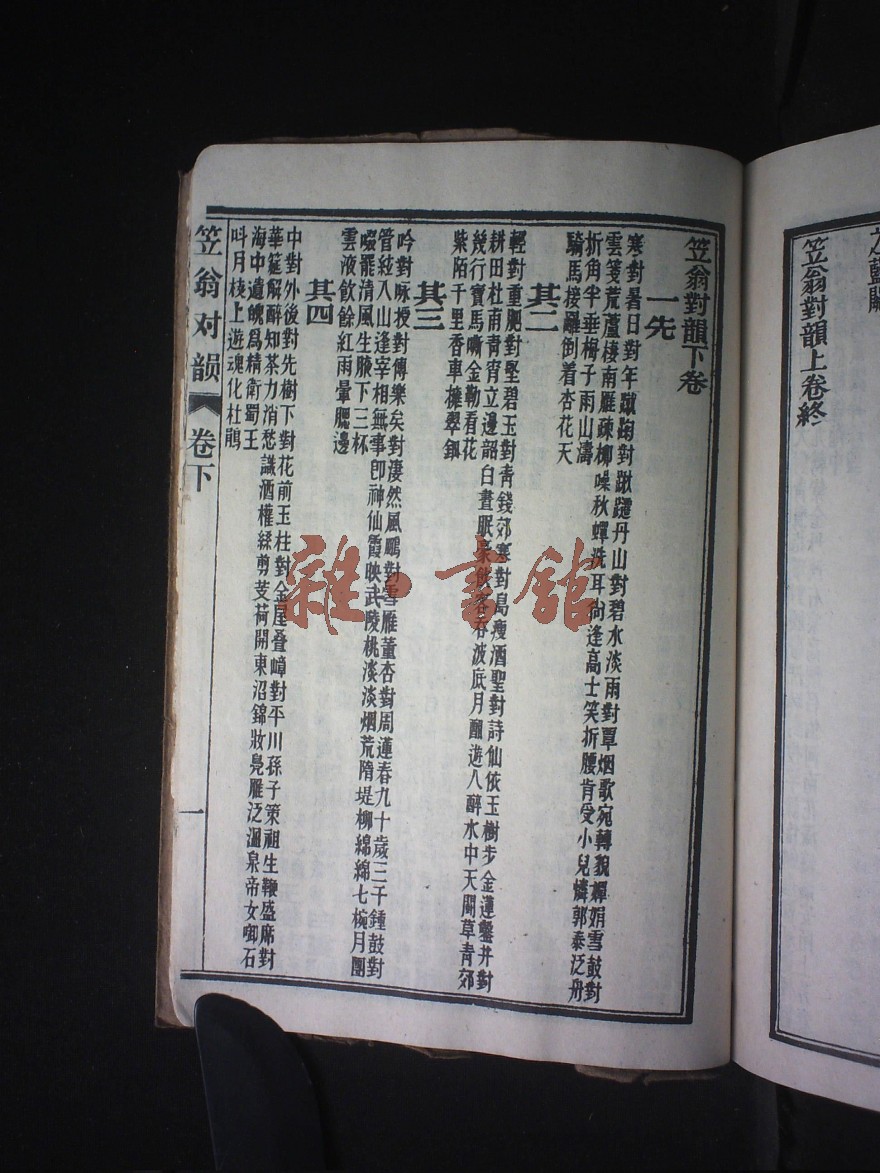 之藍關
笠翁對韻上卷終
笠翁對韻下卷
一先
寒對暑日對年蹴踘對鞦韆丹山對碧水淡雨對覃烟歌宛轉貌嬋娟雪鼓對
雲箋荒蘆棲南雁疎柳噪秋蟬洗耳尚逢高士笑折腰肯受小兒憐郭泰泛舟
折角半垂梅子雨山濤
騎馬接䍦倒着杏花天
其二
輕對重肥對堅碧玉對青錢郊寒對島瘦酒聖對詩仙依玉樹步金蓮鑿井對
耕田杜甫青宵立邊韶白晝眠豪飲客吞波底月酣遊人醉水中天鬬草青郊
幾行寶馬嘶金勒看花
紫陌千里香車擁翠鈿
其三
吟對咏授對傳樂矣對淒然風鵬對雪雁董杏對周蓮春九十歲三千鍾鼓對
管絃入山逢宰相無事卽神仙霞映武陵桃淡淡烟荒隋堤柳綿綿七椀月團
啜罷清風生腋下三杯
雲液飲餘紅雨暈腮邊
其四
中對外後對先樹下對花前玉柱對金屋叠嶂對平川孫子策祖生鞭盛席對
華筵解醉知茶力消愁識酒權綵剪芰荷開東沼錦妝鳧雁泛溫泉帝女啣石
海中遺魄爲精衛蜀王
叫月枝上遊魂化杜鵑
笠翁对韻 卷下 一
雜·書館